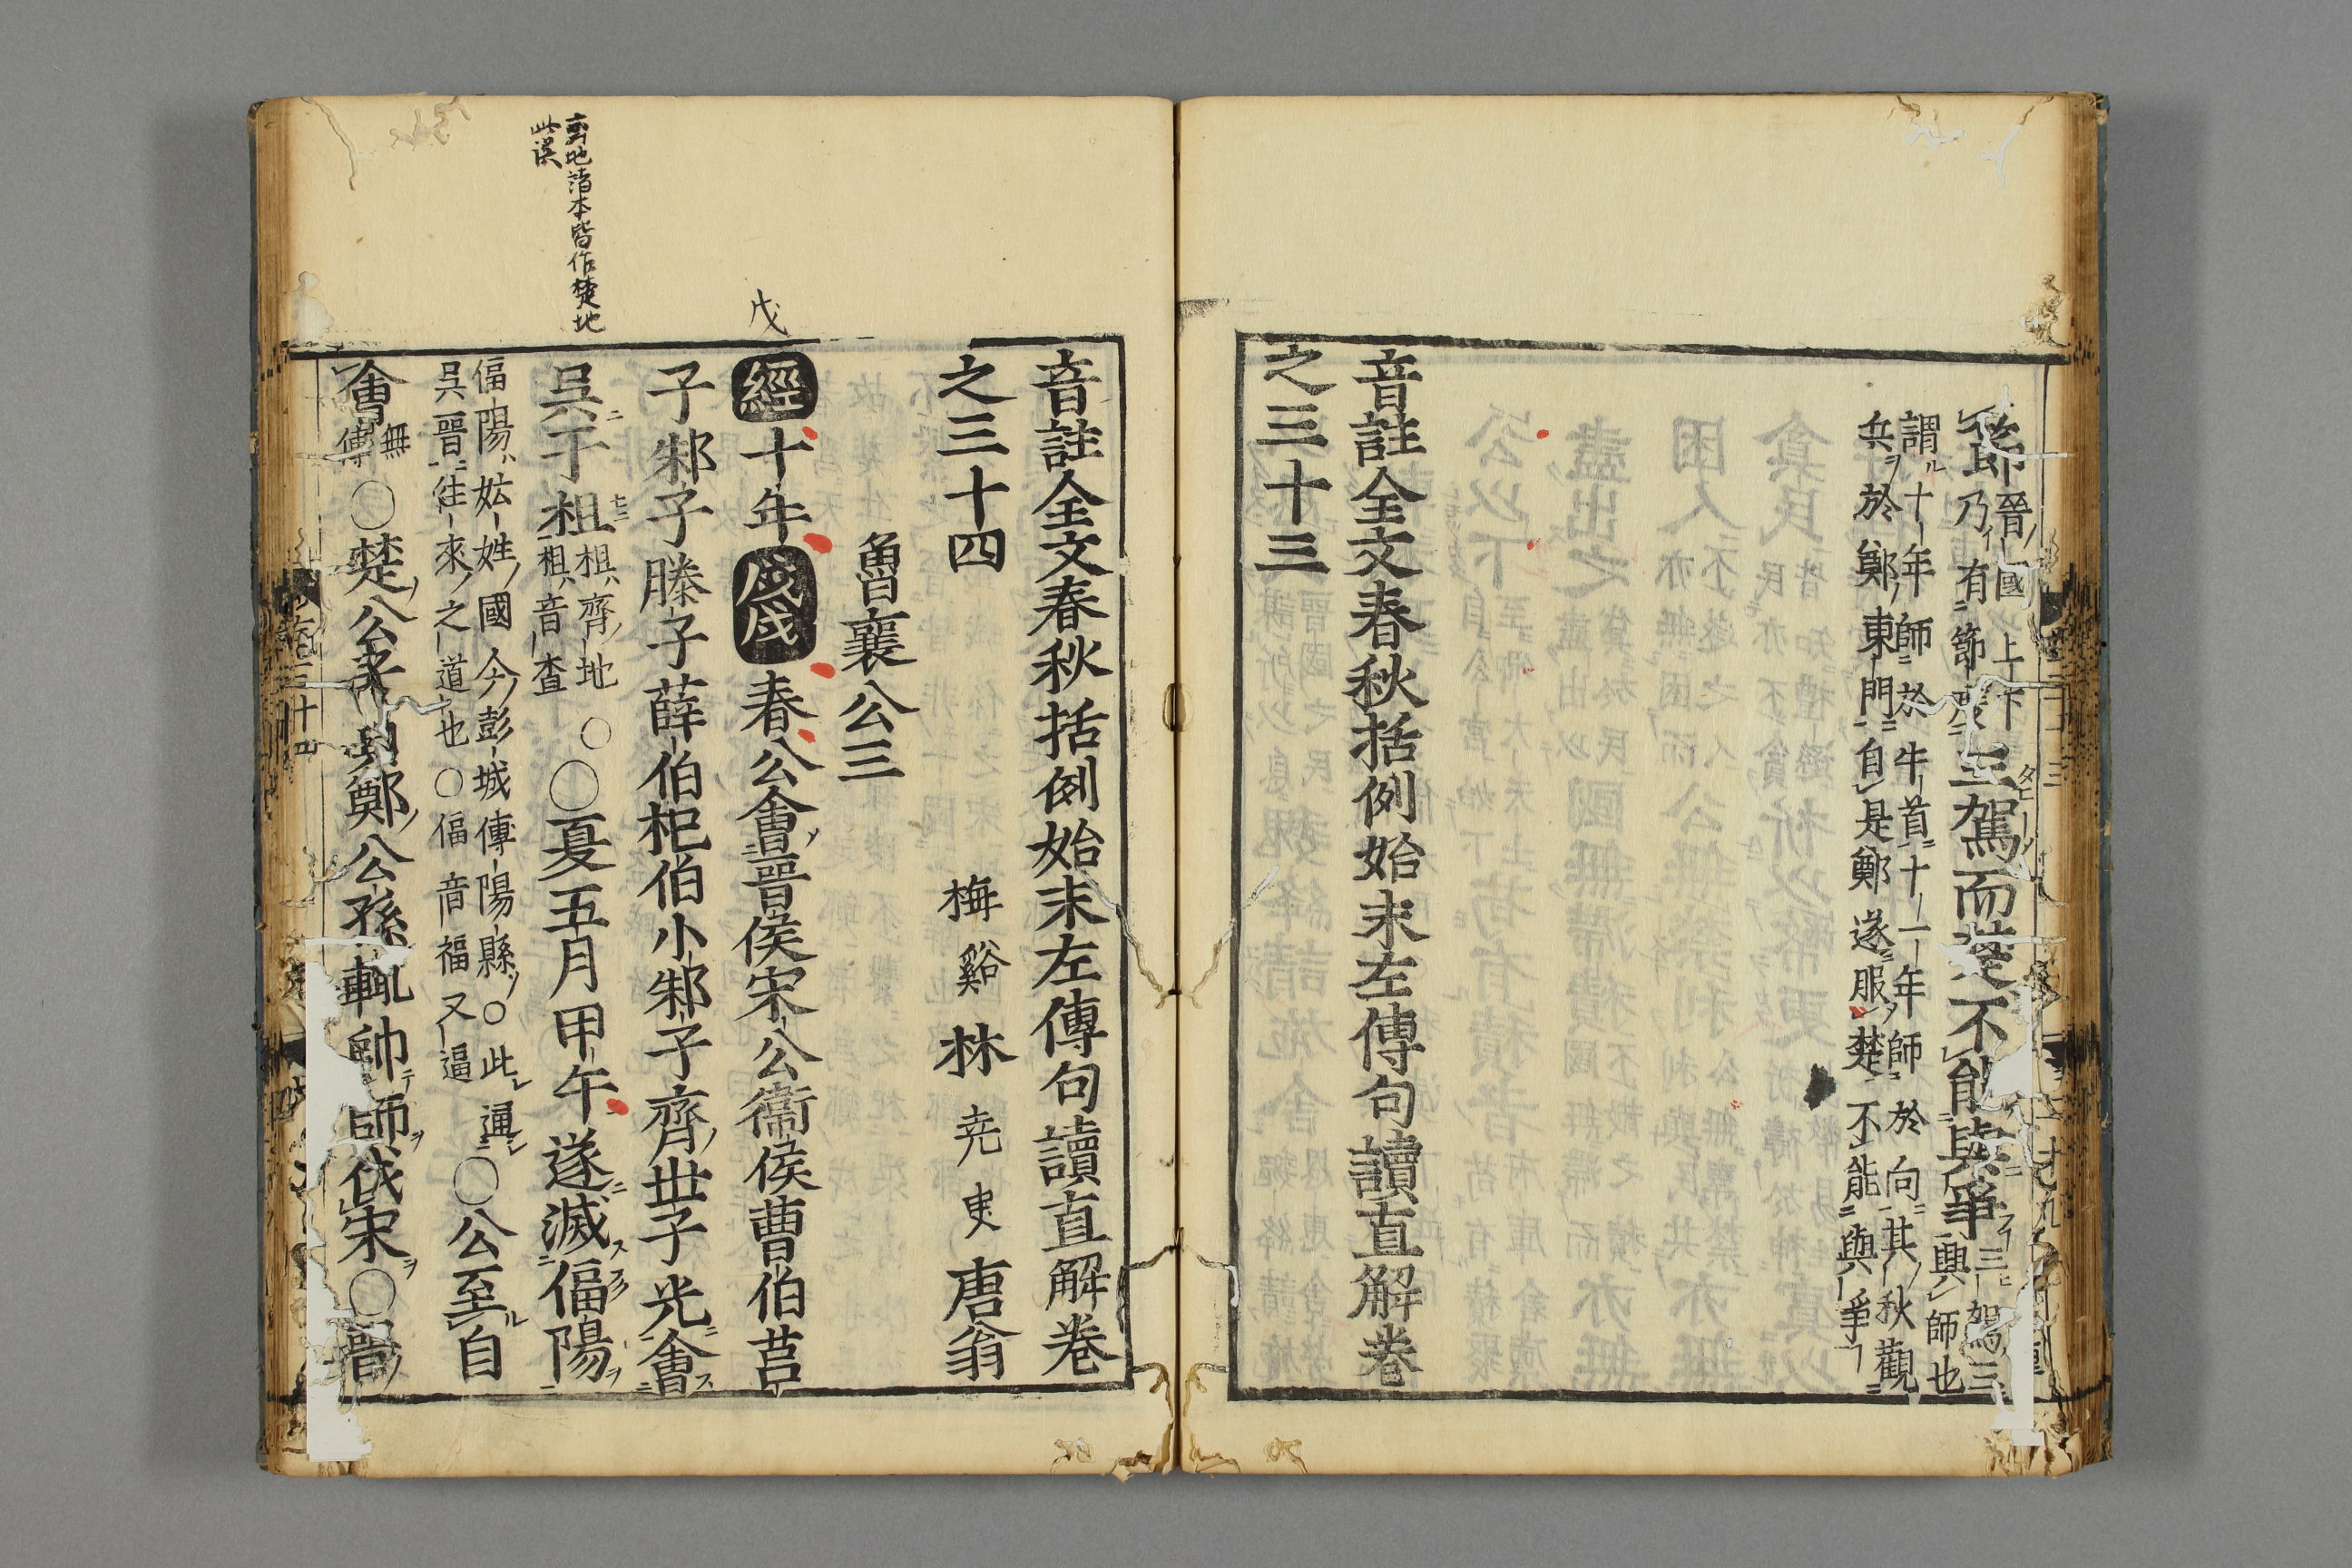 節晉國上下
乃有節度三駕而楚不能與爭三駕三
興師也
謂十年師於牛首十一年師於向其秋觀
兵於鄭東門自是鄭遂服楚不能與爭
音註全文春秋括例始末左傳句讀直解卷
之三十三
音註全文春秋括例始末左傳句讀直解卷
之三十四
梅谿林堯叟唐翁
魯襄公三
戊
經十年戊戌春公會晉侯宋公衞侯曹伯莒
子邾子滕子薛伯杞伯小邾子齊世子光會
齊地諸本皆作楚地
此誤
吳于柤柤齊地
柤音査○夏五月甲午遂滅偪陽
偪陽妘姓國今彭城傅陽縣○此通
吳晉往來之道也○偪音福又逼○公至自
會無
傳○楚公子貞鄭公孫輒帥師伐宋○晉